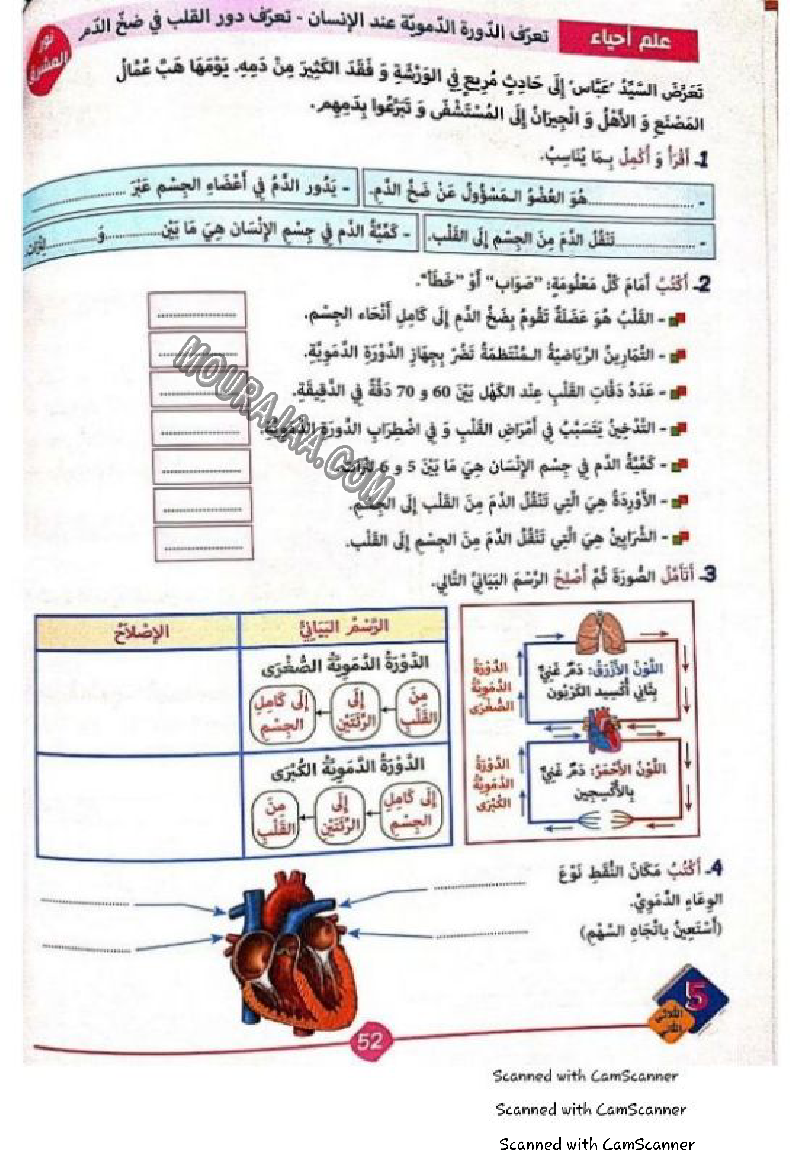 علم أحياء
تعرّف الدّورة الدّمويّة عند الإنسان - تعرّف دور القلب في ضخّ الدّم
نور المشرق
تَعَرَّضَ السَّيِّدُ "عَبَّاس" إِلَى حَادِثٍ مُرِيعٍ فِي الوَرْشَةِ وَ فَقَدَ الكَثِيرَ مِنْ دَمِهِ. يَوْمَهَا هَبَّ عُمَّالُ
المَصْنَعِ وَ الأَهْلُ وَ الْجِيرَانُ إِلَى المُسْتَشْفَى وَ تَبَرَّعُوا بِدَمِهِم.
1- أَقْرَأُ وَ أُكْمِلُ بِمَا يُنَاسِبُ.
- ............ هُوَ العُضْوُ المَسْؤُولُ عَنْ ضَخِّ الدَّمِ.
- يَدُور الدَّمُ فِي أَعْضَاءِ الجِسْمِ عَبْرَ ............
- ............ تَنْقُلُ الدَّمَ مِنَ الجِسْمِ إِلَى القَلْبِ.
- كَمِّيَّةُ الدَّمِ فِي جِسْمِ الإِنْسَان هِيَ مَا بَيْنَ ............ وَ ............ لِتْرَات.
2- أَكْتُبُ أَمَامَ كُلِّ مَعْلُومَةٍ: "صَوَاب" أَوْ "خَطَأ".
- القَلْبُ هُوَ عَضَلَةٌ تَقُومُ بِضَخِّ الدَّمِ إِلَى كَامِلِ أَنْحَاء الجِسْمِ.
- التَّمَارِينُ الرِّيَاضِيَّةُ المُنْتَظِمَةُ تَضُرُّ بِجِهَازِ الدَّوْرَةِ الدَّمَوِيَّةِ.
- عَدَدُ دَقَّاتِ القَلْبِ عِنْد الكَهْل بَيْنَ 60 و 70 دَقَّةً فِي الدَّقِيقَةِ.
- التَّدْخِينُ يَتَسَبَّبُ فِي أَمْرَاضِ القَلْبِ وَ فِي اضْطِرَابِ الدَّورَةِ الدَّمَوِيَّةِ.
- كَمِّيَّةُ الدَّم فِي جِسْمِ الإِنْسَان هِيَ مَا بَيْنَ 5 و 6 لِتْرَات.
- الأَوْرِدَةُ هِيَ الَّتِي تَنْقُلُ الدَّمَ مِنَ القَلْبِ إِلَى الجِسْمِ.
- الشَّرَايِينُ هِيَ الَّتِي تَنْقُلُ الدَّمَ مِنَ الجِسْمِ إِلَى القَلْبِ.
MOURAJAA.COM
3- أَتَأَمَّلُ الصُّورَةَ ثُمَّ أُصْلِحُ الرَّسْمَ البَيَانِيَّ التَّالِي.
اللَّوْنُ الأَزْرَقُ: دَمٌ غَنِيٌّ
بِثَانِي أُكْسِيد الكَرْبُون
الدَّوْرَةُ
الدَّمَوِيَّةُ
الصُّغْرَى
اللَّوْنُ الأَحْمَرُ: دَمٌ غَنِيٌّ
بِالأُكْسِجِين
الدَّوْرَةُ
الدَّمَوِيَّةُ
الكُبْرَى
الرَّسْمُ البَيَانِيُّ
الإِصْلَاحُ
الدَّوْرَةُ الدَّمَوِيَّةُ الصُّغْرَى
مِنَ القَلْبِ
إِلَى الرِّئَتَيْنِ
إِلَى كَامِلِ الجِسْمِ
الدَّوْرَةُ الدَّمَوِيَّةُ الكُبْرَى
إِلَى كَامِلِ الجِسْمِ
إِلَى الرِّئَتَيْنِ
مِنَ القَلْبِ
4- أَكْتُبُ مَكَانَ النُّقَطِ نَوْعَ
الوِعَاءِ الدَّمَوِيِّ.
(أَسْتَعِينُ بِاتِّجَاهِ السَّهْمِ)
5
الثلاثي الثاني
52
Scanned with CamScanner
Scanned with CamScanner
Scanned with CamScanner